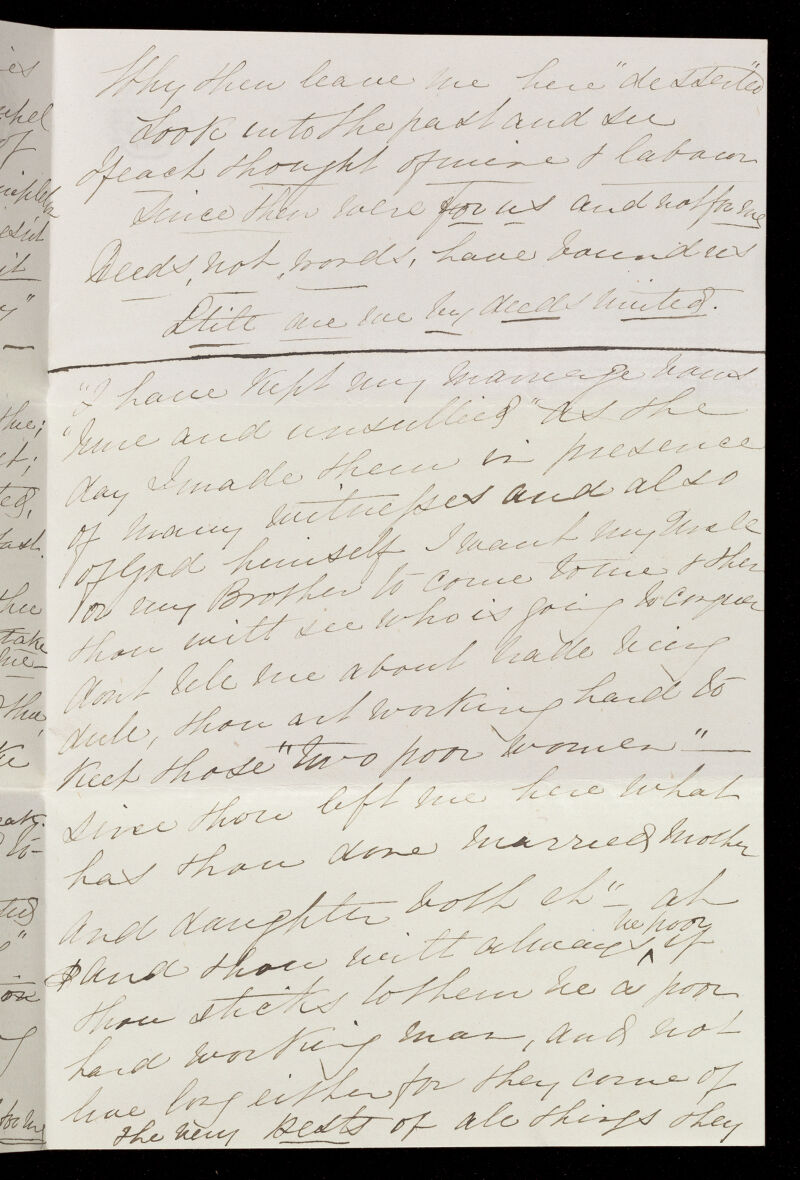 Why then leave me here "dessert"ed
Look into the past and see
If each thought of mine & labour
Since then were for us and not for me
Deeds, not, words, have bound us
Still are we by deeds United.
"I have kept my marriage vows
"true and unsullied" as the
day I made them in presence
of many witnesses and also
of God himself I want my Uncle
or my Brother to come to me & then
thou will see who is going to conquer
dont tele me about trade being
dule, thou art working hard to
keep those "two poor women" —
since thou left me here what
has thou done married Mother
and daughter both eh" — ah
And thou will always be poor if
thou sticks to them be a poor
hard working man, and not
live long either for they come of
the very
of ale things they
es
of
esnt
it
y"
the;
ted,
last.
thee
take
me —
to —
"
on
me